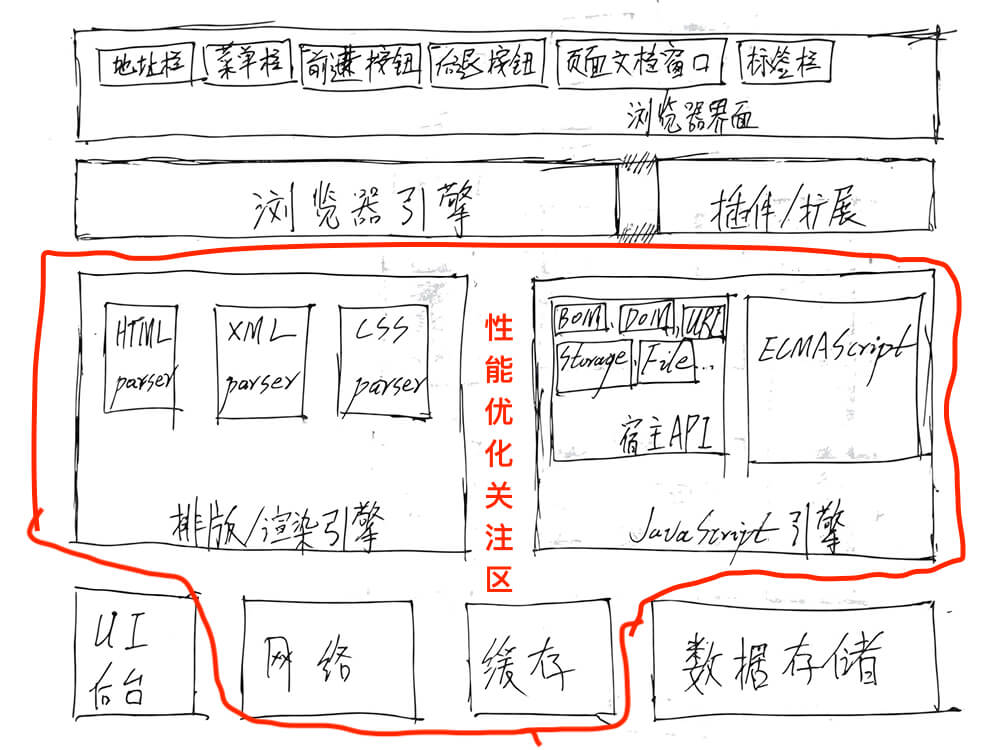 地址栏 菜单栏 前进按钮 后退按钮 页面文档窗口 标签栏
浏览器界面
浏览器引擎 插件/扩展
HTML
parser
XML
parser
CSS
parser
排版/渲染引擎
性能优化关注区
BOM、DOM、URL
Storage、File...
宿主API
ECMAScript
JavaScript引擎
UI
后台
网络
缓存
数据存储